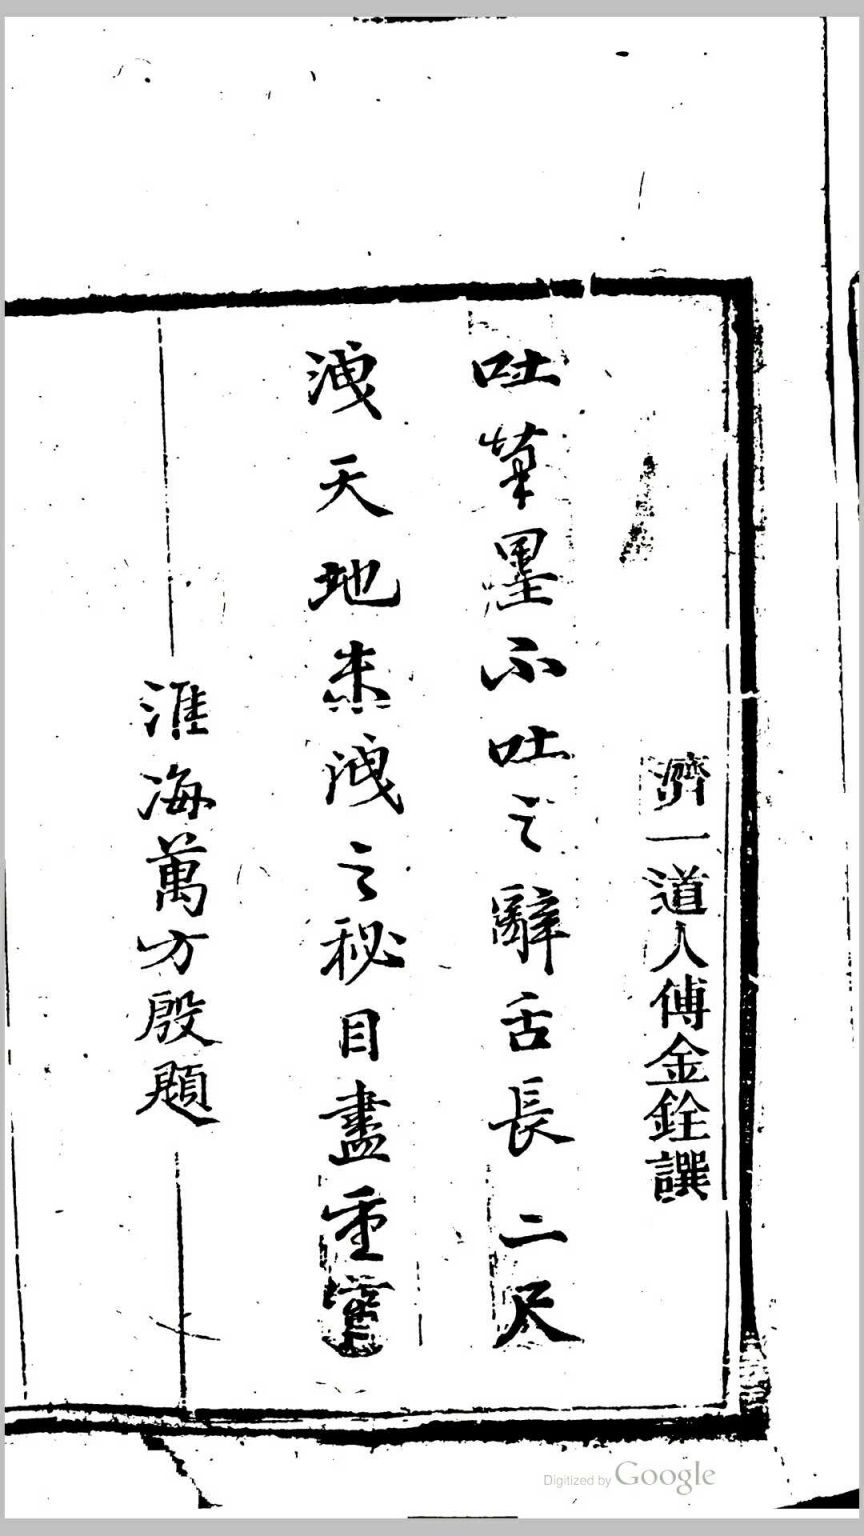 濟一道人傅金銓譔
吐筆墨不吐之辭舌長二尺
洩天地未洩之祕目盡重霄
淮海萬方殷題
Digitized by Google